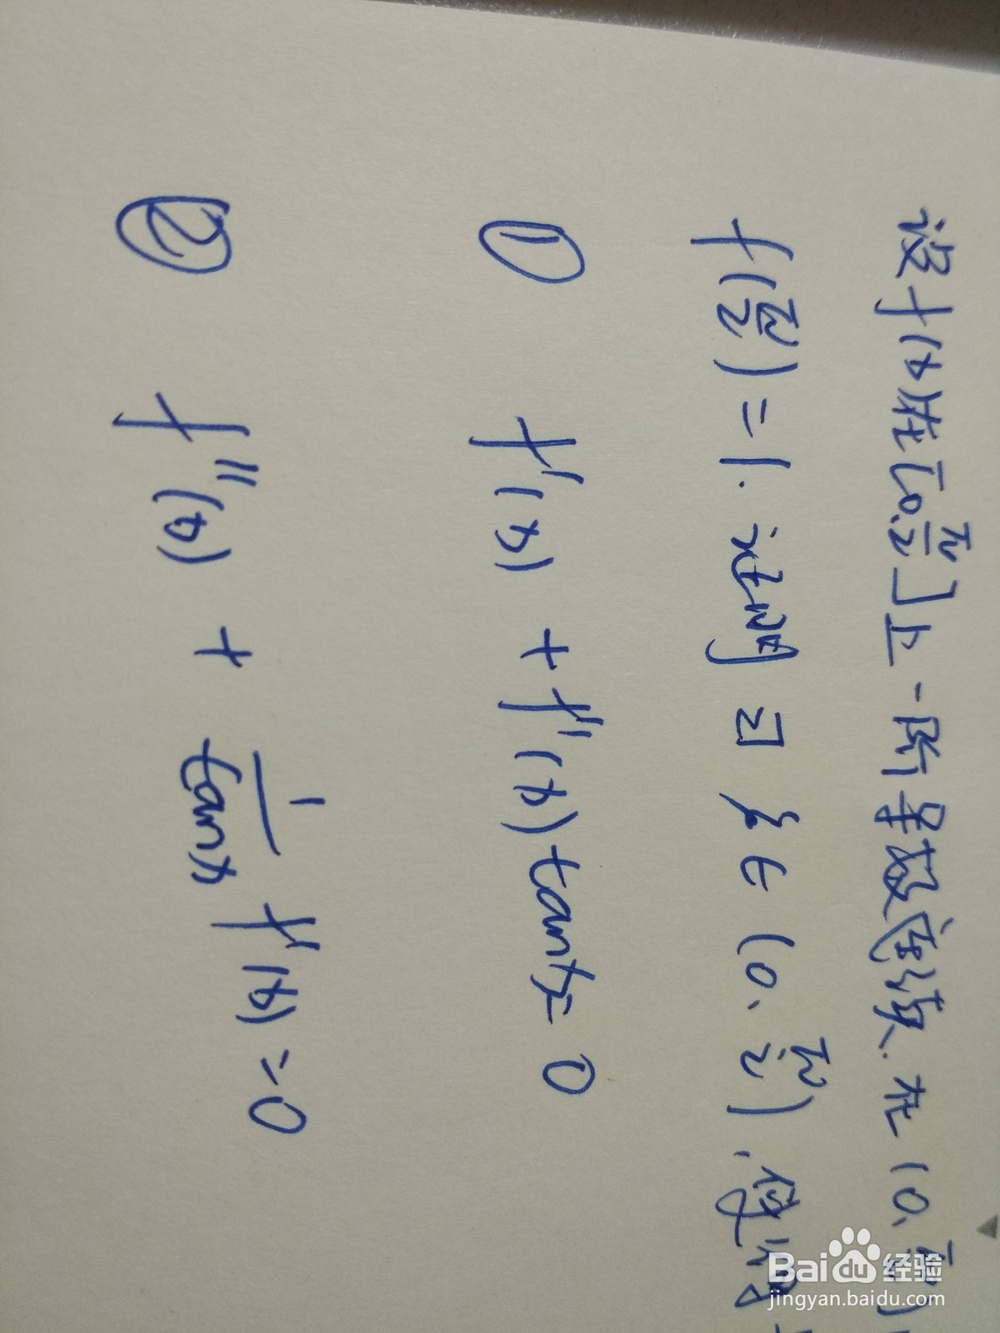 设f(x)在[0,π/2]上一阶导数连续.在(0,π/2)
f(π/2)=1.证明∃ξ∈(0,π/2),使得
① f'(x)+f''(x)tanx=0
② f''(x)+1/tanx f'(x)=0
Baidu经验
jingyan.baidu.com